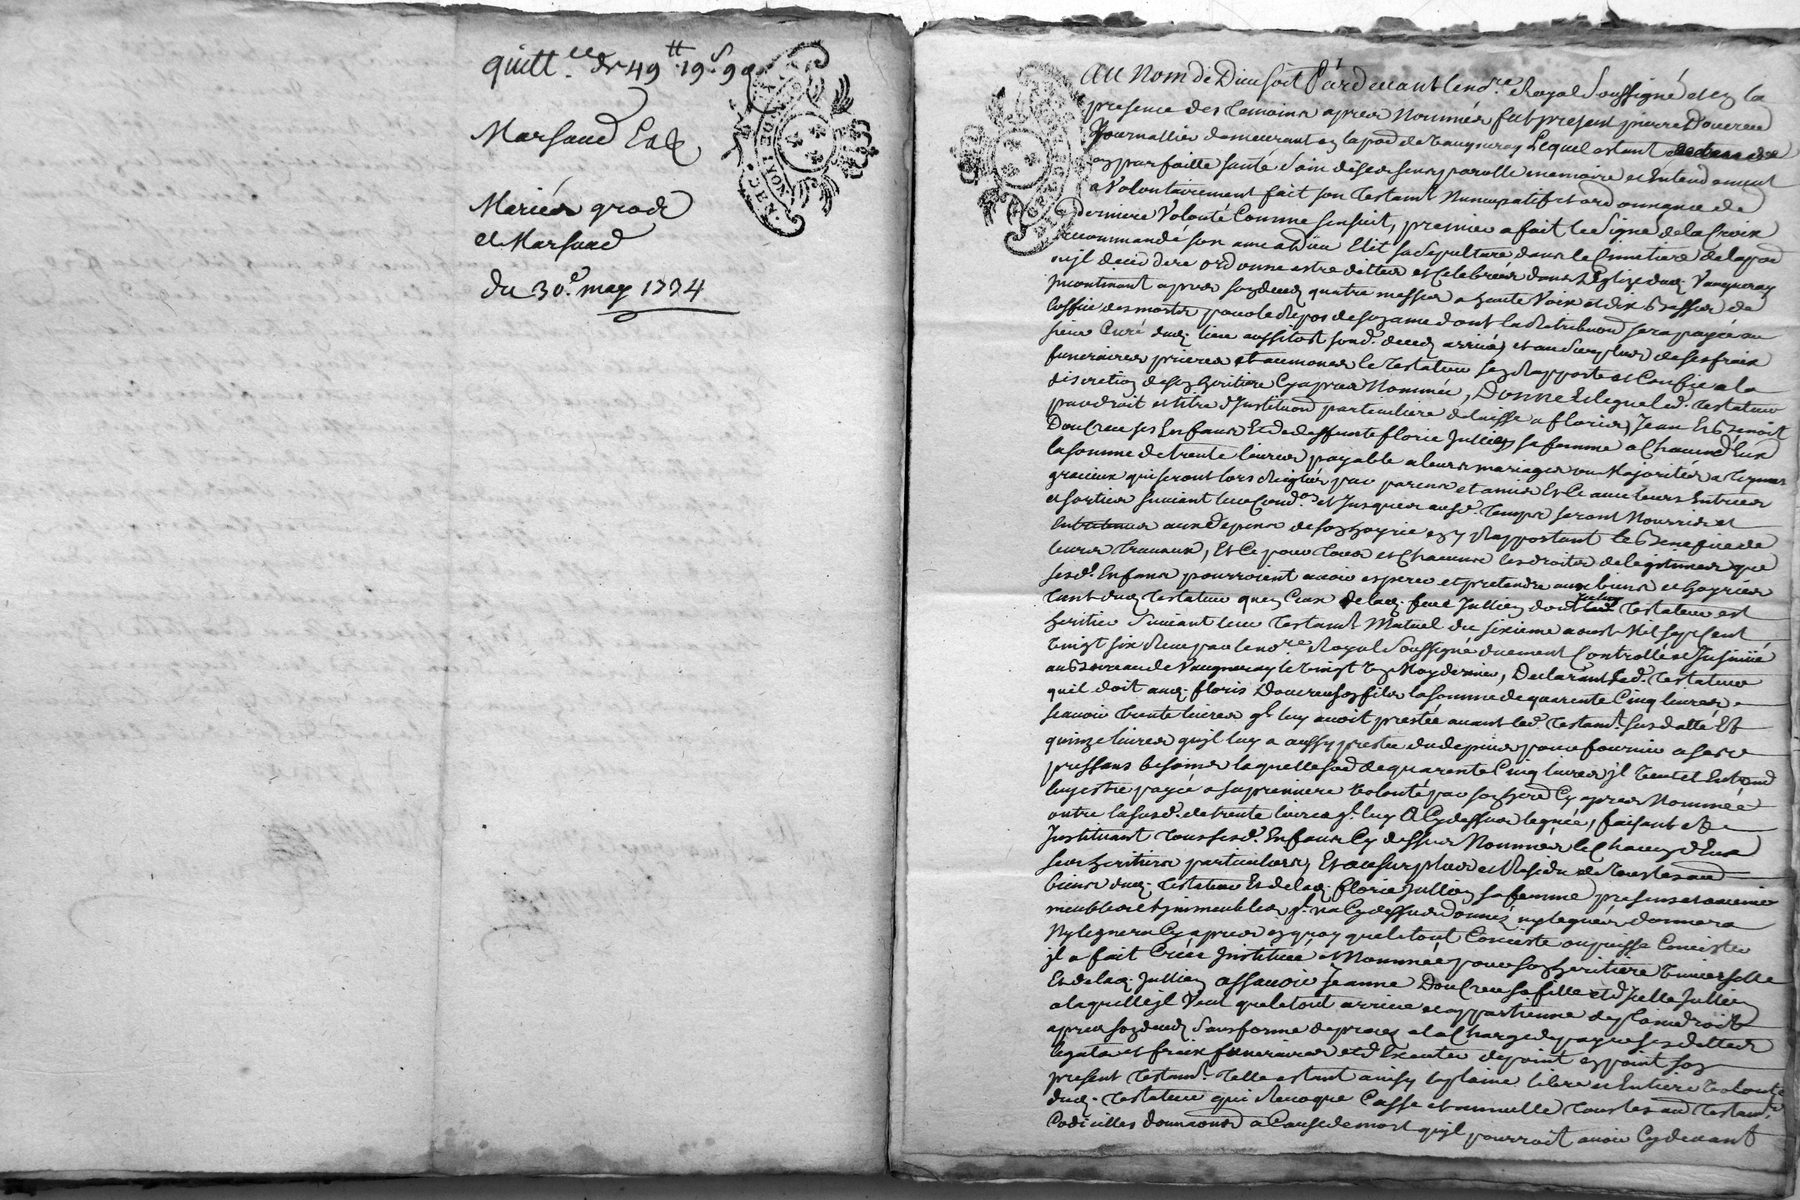 quitt.ce de 49tt 19s 9d
Marsaud
Mariés grod
et Marsaud
du 30e may 1734
GEN. DE LYON
Au Nom de Dieu soit Pardevant le no.re Royal Soussigné et en la
presence des temoins apres Nommés fut present pierre Doucreu
Journallier demeurant en la parr de Vaugneray Lequel estant
en parfaitte santé sain de ses sens parolle memoire et Entendement
a Volontairement fait son testamt Nuncupatif et ordonnance de
derniere Volonté Comme sensuit, premier a fait le signe de la Croix
recommandé son ame a Dieu Elit sa sepulture dans le Cimetiere de la parr
ou jl decedera ordonne estre dittes et Celebrées dans L'Eglize dud. Vaugneray
jncontinant apres son deced quatre messes a haute Voix et dix basses de
l'office des morts pour le Repos de son ame dont la Retribuon sera payée au
sieur Curé dud. lieu aussitost sond. deced arrivé, et au surplus de ses frais
funeraires prieres et aumones le testateur sen Rapporte et Confie a la
discretion de son heritiere Cy apres Nommée, Donne et legue led. testateur
par droit et titre d'Instituon particuliere delaisse a floris, Jean Et Benoist
Doucreu ses Enfans Et de deffunte florie Jullien sa femme a Chacun d'Eux
la somme de trente livres payable a leurs mariages ou Majorités a termes
gracieux qui seront lors Reglés par parens et amis Et Ce avec leurs Entrées
et sorties suivant leur Cond.on et Jusques aud. temps seront Nourris et
Entretenus aux depens de son hoyrie en y Rapportant le Benefice de
leurs travaux, Et Ce pour tous et Chacuns les droits de legitimes que
sesd. Enfans pourroient avoir esperer et pretendre aux biens et hoyries
tant dud. testateur que en Ceux de lad. feue Jullien dont led. testateur est
heritier suivant leur testamt Mutuel du sixieme aoust Mil sept Cent
vingt six Receu par le no.re Royal Soussigné duement Controllé et Jnsinué
au Bureau de Vaugneray le vingt May dernier, Declarant Led. testateur
quil doit aud. floris Doucreu son fils la somme de quarente Cinq livres
scavoir trente livres q'l luy avoit prestée avant led. testamt. susdatté Et
quinze livres qu'jl luy a aussy prestée du depuis pour fournir a ses
pressans besoins laquelle so.e de quarente Cinq livres jl veut et Entend
luy estre payée a sa premiere volonté par son herd. Cy apres Nommée
outre la susd. de trente livres q'l luy a Cy dessus leguée, faisant et
Jnstituant tous sesd. Enfans Cy dessus Nommés et Chacun d'Eux
ses heritiers particuliers, Et au surplus et Residu de tous les aud
biens dud. testateur Et de lad. florie Jullien sa femme presens et avenir
meubles et jmmeubles q'l n'a Cy dessus donnés ny legués donnera
Ny leguera Cy apres en quoy que le tout Conciste ou puisse Concister
jl a fait Créée Jnstituée et Nommée pour son heritiere Universelle
Et de lad. Jullien assavoir Jeanne Doucreu sa fille et d'jcelle Jullien
a laquelle jl Veut que le tout arrive et appartienne de plain droit
apres son deced sans forme de proces a la Charge de payer ses dettes
legats et frais funeraires et d'Executer de point en point son
present testamt. telle estant ainsy la plaine libre et Entiere volonté
dud. testateur qui Revoque Casse et annulle tous les aud testamt
Codicilles donnaons a Cause de mort qu'jl pourroit avoir Cydevant